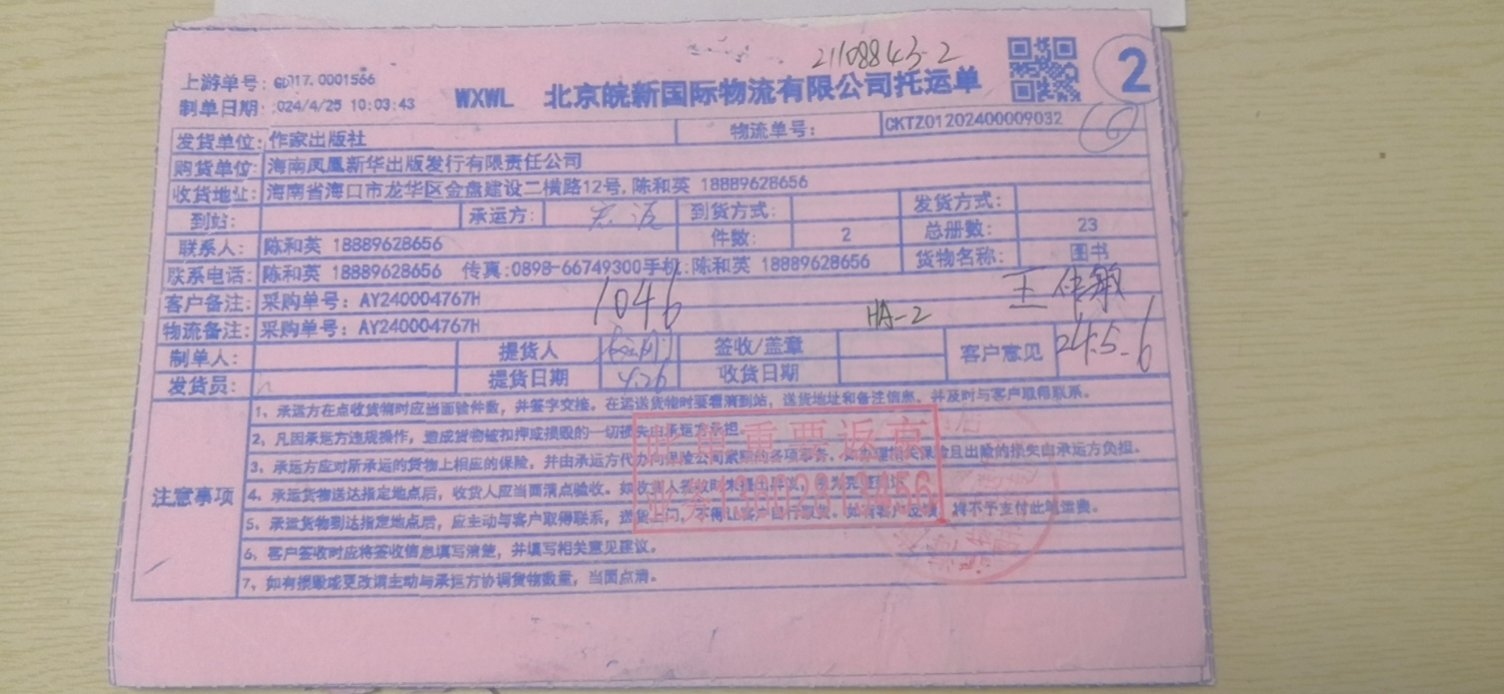 21108843-2
上游单号: GD17.0001566
制单日期: 024/4/25 10:03:43
WXWL 北京皖新国际物流有限公司托运单
2
发货单位: 作家出版社 物流单号: CKTZ01202400009032
购货单位: 海南凤凰新华出版发行有限责任公司
收货地址: 海南省海口市龙华区金盘建设二横路12号,陈和英 18889628656
到站: 承运方: 到货方式: 发货方式:
联系人: 陈和英 18889628656 件数: 2 总册数: 23
联系电话: 陈和英 18889628656 传真:0898-66749300手机:陈和英 18889628656 货物名称: 图书
客户备注: 采购单号: AY240004767H 1046
物流备注: 采购单号: AY240004767H HA-2
制单人: 提货人 签收/盖章 客户意见 24.5.6
发货员: 提货日期 4.26 收货日期
注意事项
1、承运方在点收货物时应当面验件数，并签字交接。在运送货物时要看清到站，送货地址和备注信息，并及时与客户取得联系。
2、凡因承运方违规操作，造成货物被扣押或损毁的一切损失由承运方承担。
3、承运方应对所承运的货物上相应的保险，并由承运方代办向保险公司索赔的各项事务，如办理相关保险且出险的损失由承运方负担。
4、承运货物送达指定地点后，收货人应当面清点验收。如收货人签收时未提出异议，
5、承运货物到达指定地点后，应主动与客户取得联系，送货上门，不得让客户自行取货。如有客户反馈，将不予支付此笔运费。
6、客户签收时应将签收信息填写清楚，并填写相关意见建议。
7、如有损毁或更改请主动与承运方协调货物数量，当面点清。
此单重票返京